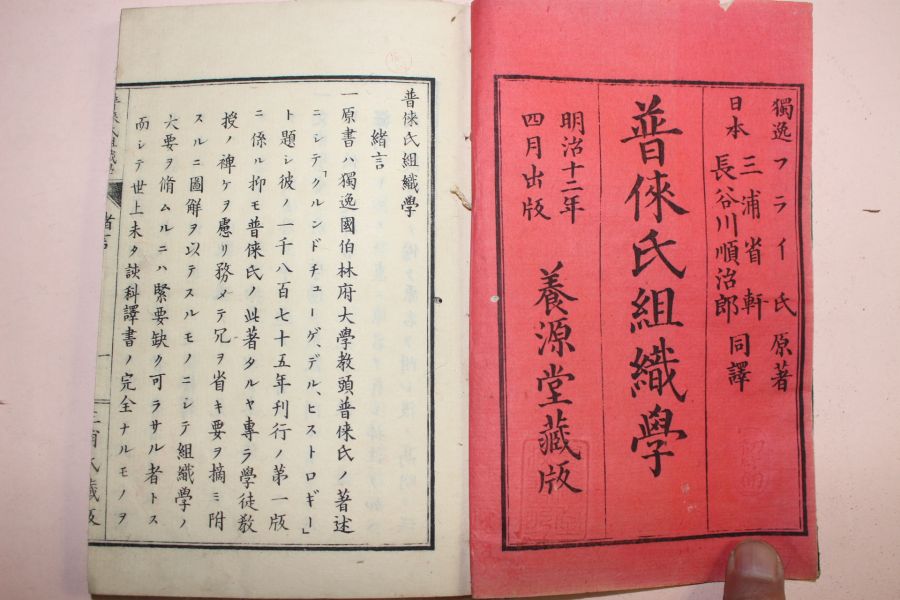 獨逸 フライ氏 原著
日本 三浦省軒 長谷川順治郎 同譯
普倈氏組織學
明治十二年
四月出版
養源堂藏版
普倈氏組織學
緒言
一原書ハ獨逸國伯林府大學教頭普倈氏ノ著述
ニシテ「クルンドチューゲ、デル、ヒストロギー」
ト題シ彼ノ一千八百七十五年刊行ノ第一版
ニ係ル抑モ普倈氏ノ此著タルヤ專ラ學徒教
授ノ裨ケヲ慮リ務メテ冗ヲ省キ要ヲ摘ミ附
スルニ圖解ヲ以テスルモノニシテ組織學ノ
大要ヲ脩ムルニハ緊要缺ク可ラサル者トス
而シテ世上未タ該科譯書ノ完全ナルモノヲ
普倈氏組織學
緒言
一
三浦氏藏版